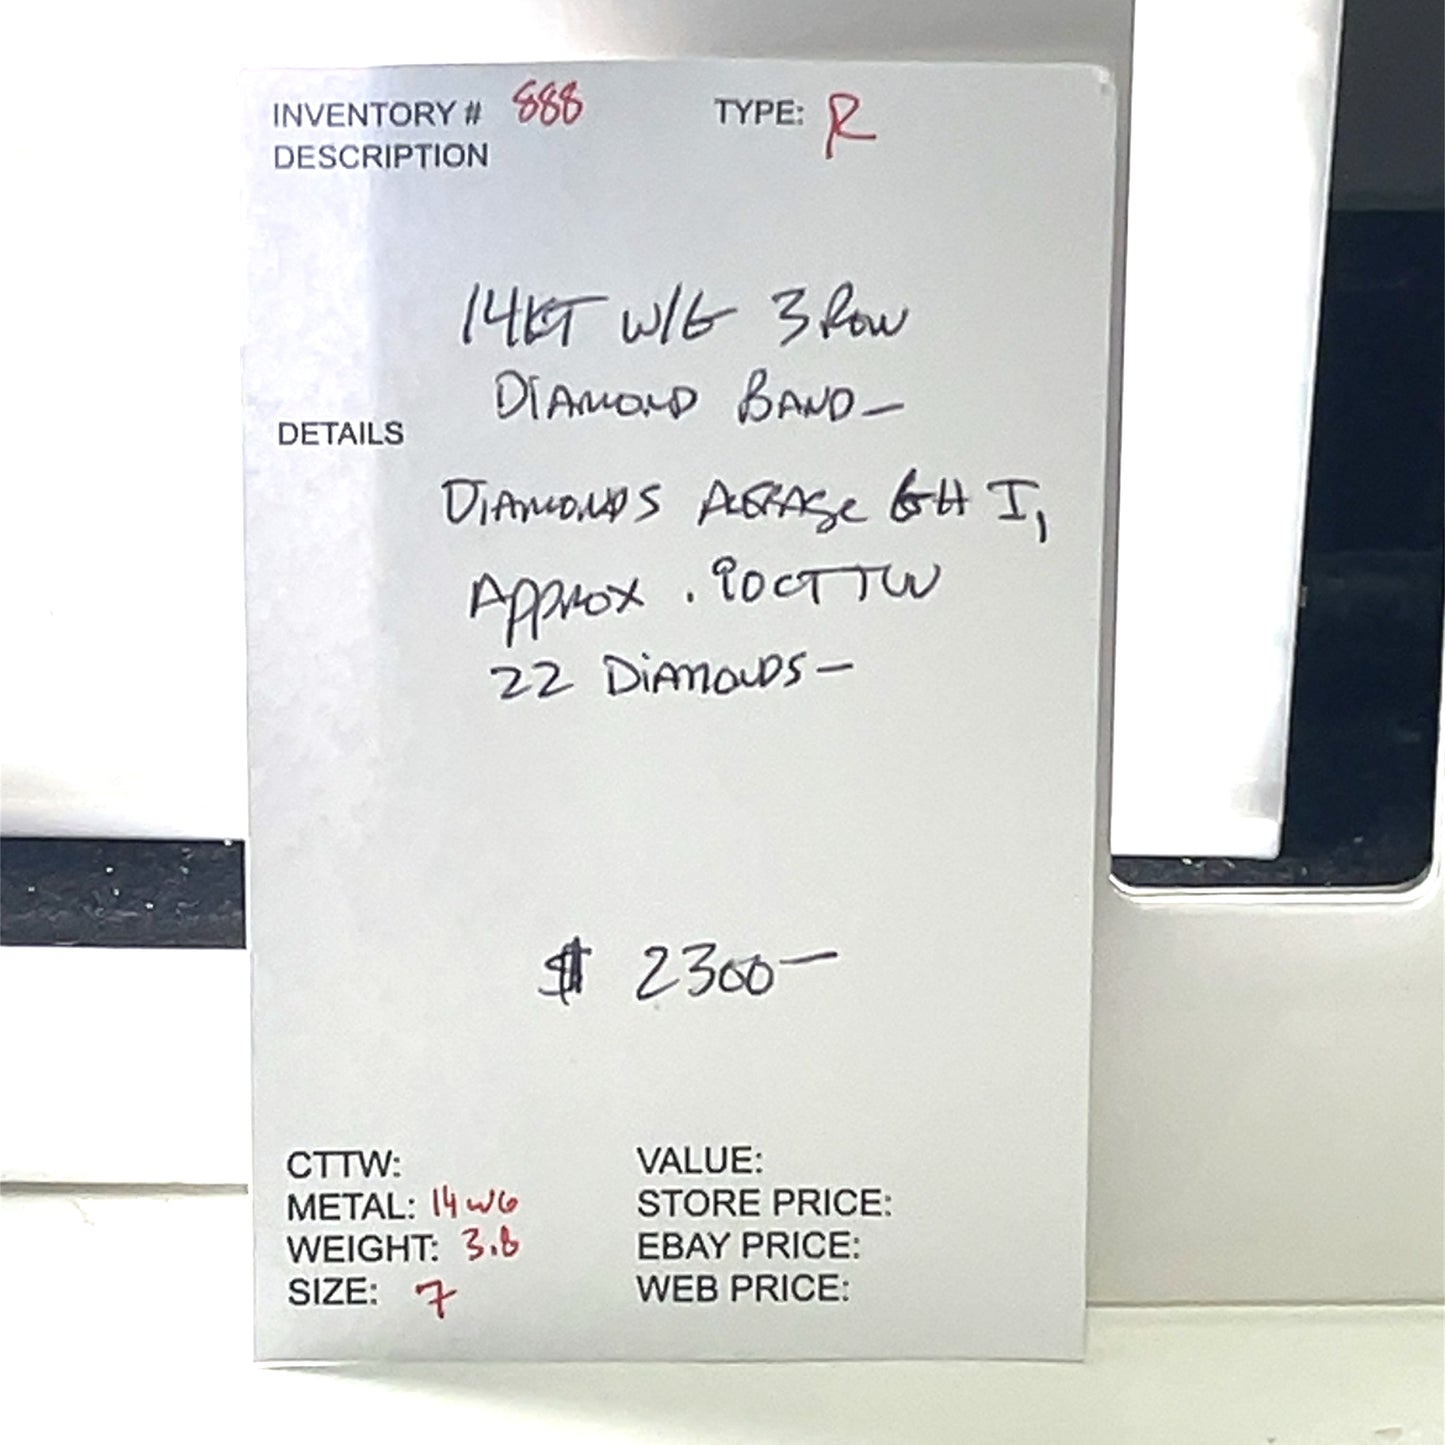 INVENTORY # 888 TYPE: R
DESCRIPTION
14KT W/G 3 Row
DIAMOND BAND-
DETAILS
DIAMONDS AERAGE GH I1
APPROX .90CTTW
22 DIAMONDS-
$ 2300-
CTTW: VALUE:
METAL: 14WG STORE PRICE:
WEIGHT: 3.8 EBAY PRICE:
SIZE: 7 WEB PRICE: